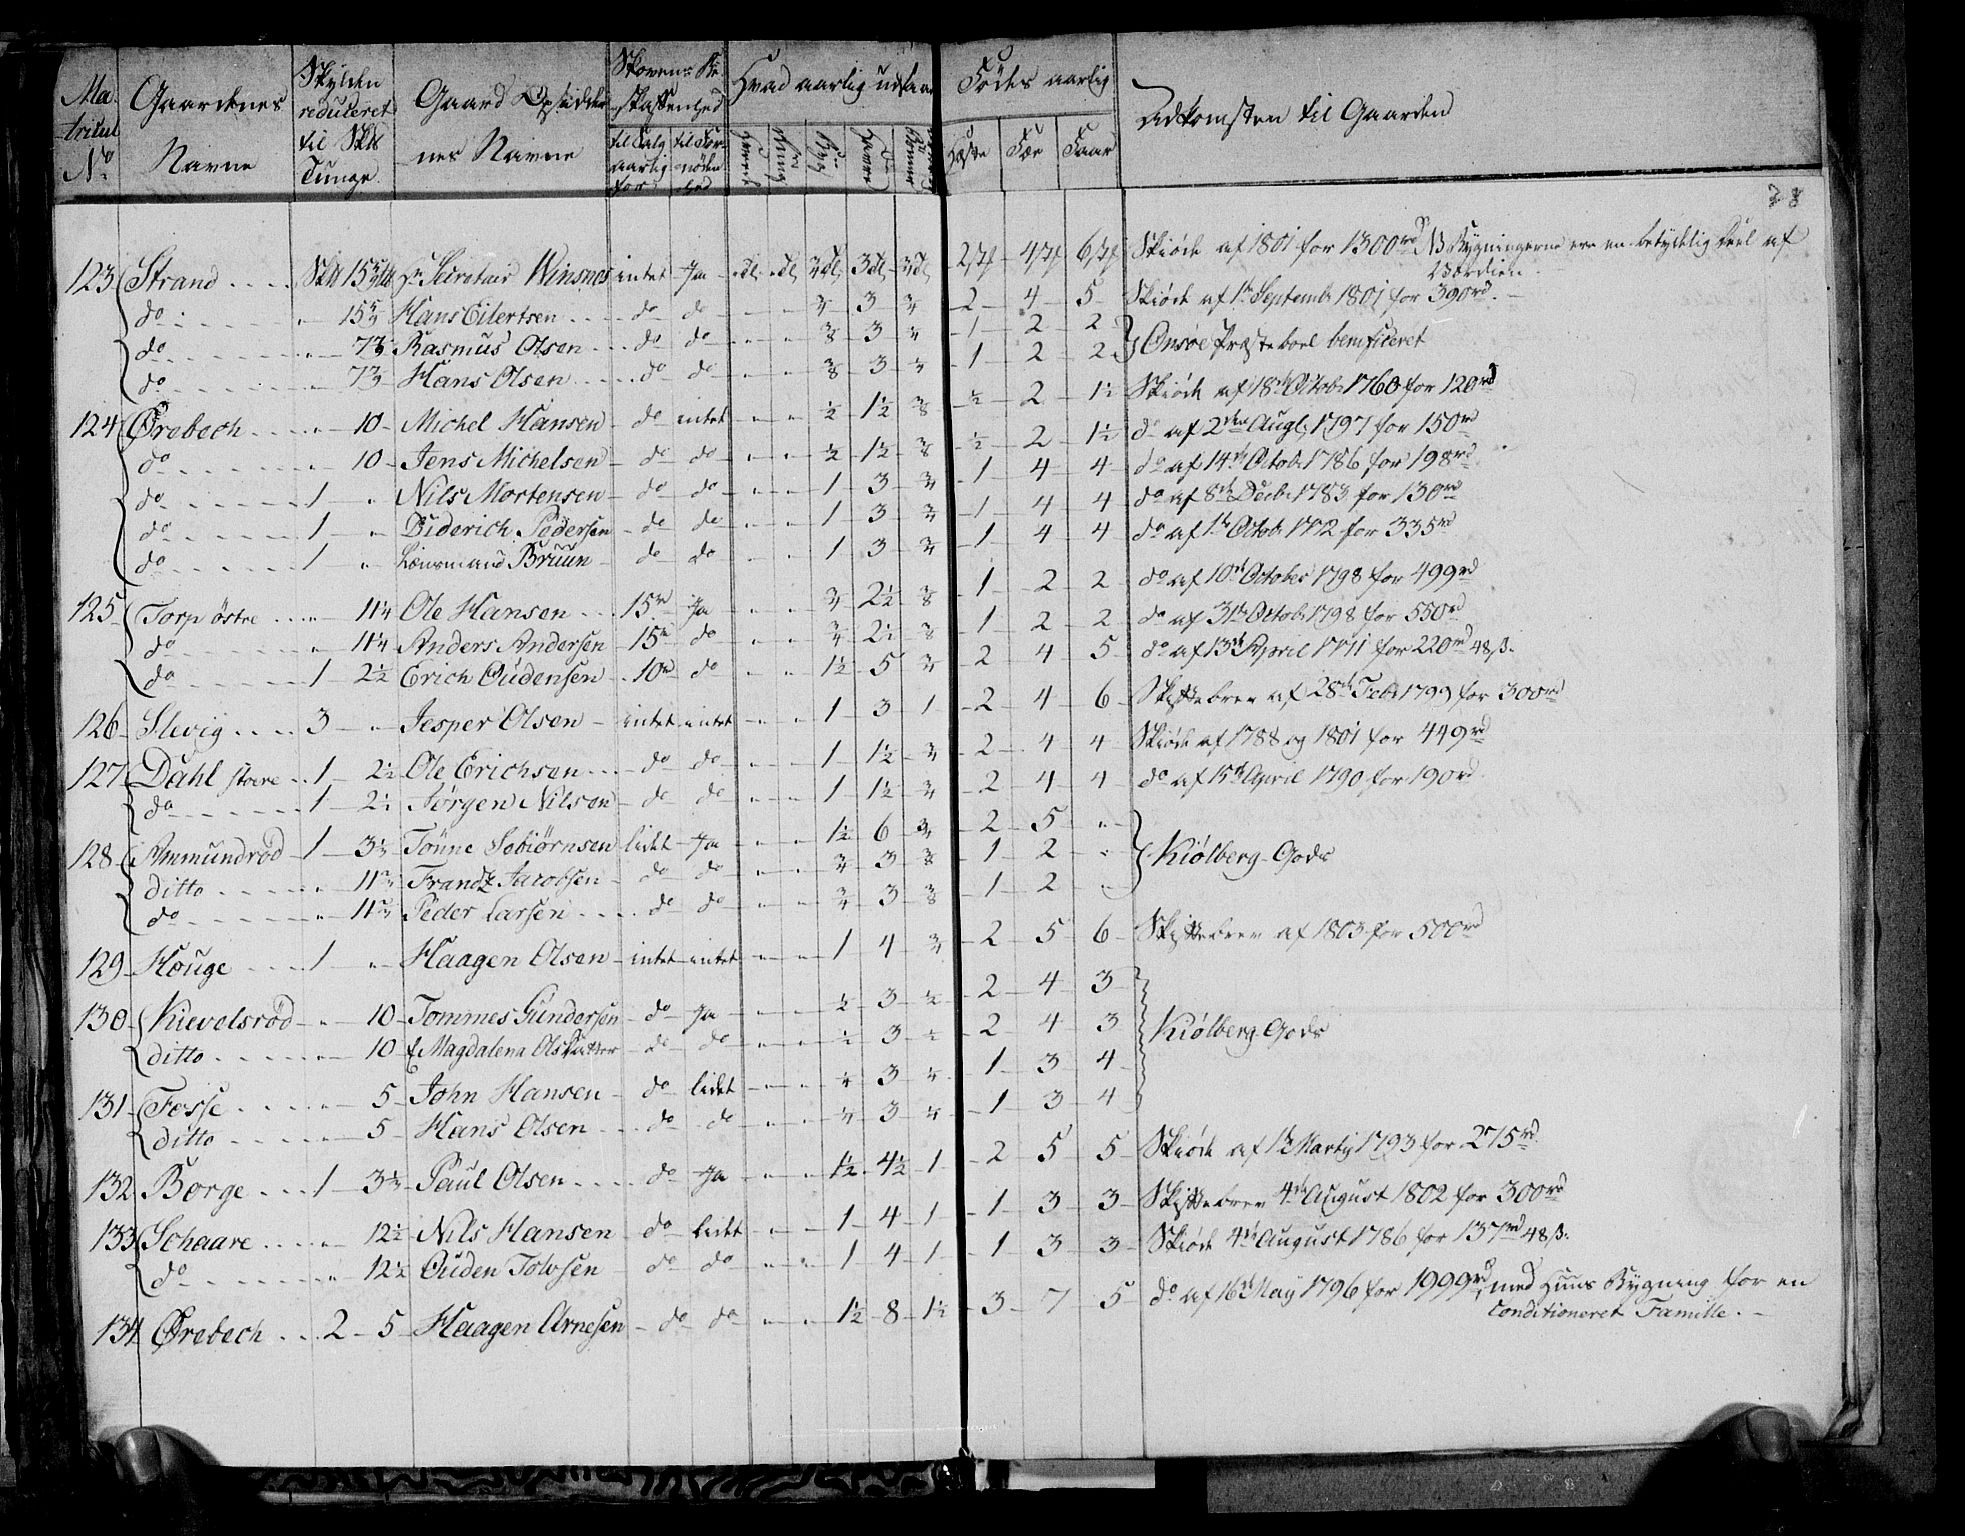 Ma
tricul
No
Gaardenes
Navne
Skylden
reduceret
til Skb
Tunge.
Gaard Opsidder
nes Navne
Skovens Be
skaffenhed
til Salg
aarlig
for
til For
nøden
hed
Hvad aarlig udsaaes
Hvede
Rug
Byg
Havre
Fødes aarlig
Hæste
Fæe
Faar
Adkomsten til Gaarden
38
123 Strand .... Skb 15 Hr Secretair Winsnes intet Ja 3 2 4 6 Skiøde af 1801 for 1300rd NB Bygningerne ere en betydelig Deel af
Værdien.
do .... 15 Hans Eilertsen .... do do 3 2 4 5 Skiøde af 1te Septembr 1801 for 390rd.
do .... 7½ Rasmus Olsen ... do do 3 1 2 2 Onsøe Præsteboel beneficeret
do .... 7½ Hans Olsen .... do do 3 1 2 2
124 Ørebech .... 10 Michel Hansen do intet ½ 1½ ⅜ ½ 2 1½ Skiøde af 18de Octobr 1760 for 120rd
do .... 10 Jens Michelsen do do ½ 1½ ⅜ ½ 2 1½ do af 2den Augt 1797 for 150rd
do .... 1 " Nils Mortensen do do 1 3 ¾ 1 4 4 do af 14de Octobr 1786 for 198rd
do .... 1 " Diderich Pedersen do do 1 3 ¾ 1 4 4 do af 8de Decbr 1783 for 130rd
do .... 1 " Lænsmand Bruun do do 1 3 ¾ 1 4 4 do af 1te Octobr 1772 for 335rd
125 Torp østre .... 11¼ Ole Hansen ... 15rd Ja ¾ 2½ ⅜ 1 2 2 do af 10de October 1798 for 499rd
do .... 11¼ Anders Andersen 15rd do ¾ 2½ ⅜ 1 2 2 do af 31te Octobr 1798 for 550rd
do .... 1 2½ Erich Oudensen . 10rd do 1½ 5 ¾ 2 4 5 do af 13de April 1771 for 220rd 48ß.
126 Slevig .... 3 " Jesper Olsen intet intet 1 3 1 2 4 6 Skiftebrev af 28de Febr 1799 for 300rd
127 Dahl store .. 1 2½ Ole Erichsen ... do do 1 1½ ¾ 2 4 4 Skiøde af 1788 og 1801 for 449rd
do .... 1 2½ Jørgen Nilsen do do 1 1½ ¾ 2 4 4 do af 15de April 1790 for 190rd
128 Ammundrød 1 3¾ Tønne Sebiørnsen lidet Ja 1½ 6 ¾ 2 5 " Kiølberg Gods
ditto .... 11 Frandz Jacobsen do do ¾ 3 ⅜ 1 2 "
do .... 11 Peder Larsen .... do do ¾ 3 ⅜ 1 2 "
129 Houge .... 1 " Haagen Olsen intet intet 1 4 ¾ 2 5 6 Skiftebrev af 1803 for 500rd
130 Kievelsrød " 10 Tommes Gundersen do Ja ½ 3 ½ 2 4 3 Kiølberg Gods
ditto .... 10 Magdalena Olsdatter do do ½ 3 ½ 2 4 3
131 Fosse .... 5 John Hansen do lidet 3 1 3 4
ditto .... 5 Hans Olsen ... do do 3 1 3 4
132 Borge ... 1 3¾ Paul Olsen .... do Ja 1½ 4½ 1 2 5 5 Skiøde af 1te Martij 1793 for 275rd
133 Schaare .... 12½ Nils Hansen do lidet 1 4 1 1 3 3 Skiftebrev 4de August 1802 for 300rd
do .... 12½ Ouden Tolvsen do do 1 4 1 1 3 3 Skiøde 4de August 1786 for 137rd 48ß.
134 Ørebech ... 2 5 Haagen Arnesen do do 1½ 8 1½ 3 7 5 do af 16de May 1796 for 1999rd, med Huus Bygning for en
Conditioneret Famille.